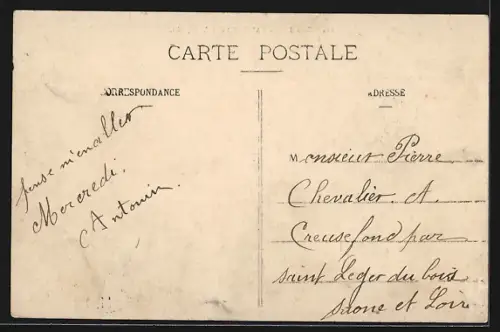 CARTE POSTALE
CORRESPONDANCE
ADRESSE
pense m'en aller
Mercredi.
Antonin.
Monsieur Pierre
Chevalier. A.
Creusefond par
saint Leger du bois
saone et Loir